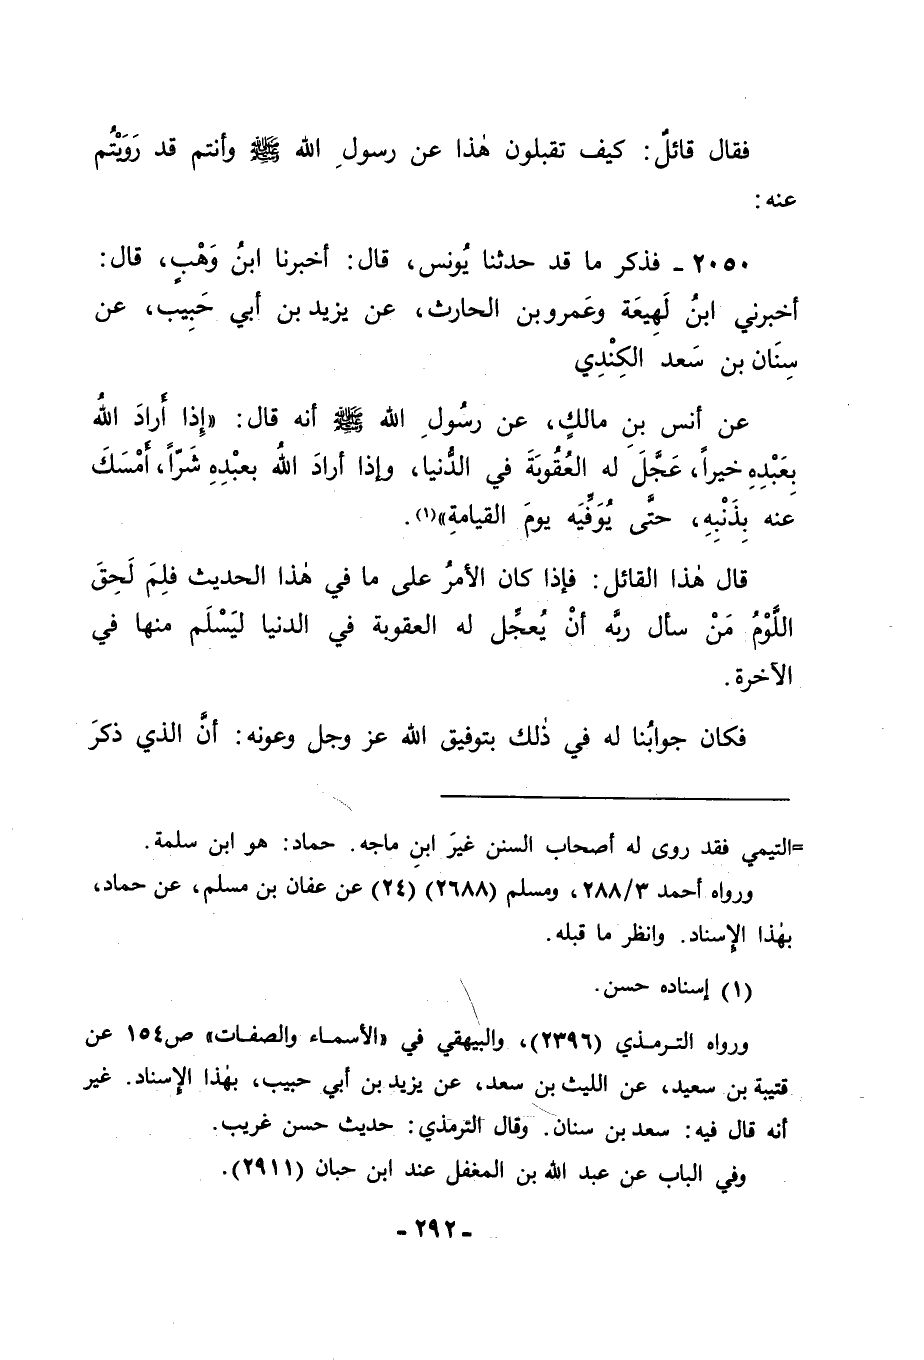 فقال قائلٌ: كيف تقبلون هٰذا عن رسولِ الله ﷺ وأنتم قد رَوَيْتُم
عنه:
٢٠٥٠ ـ فذكر ما قد حدثنا يُونس، قال: أخبرنا ابنُ وَهْبٍ، قال:
أخبرني ابنُ لَهِيعَة وعَمرو بن الحارث، عن يزيد بن أبي حَبِيب، عن
سِنَان بن سَعد الكِنْدِي
عن أنس بنِ مالكٍ، عن رسُولِ الله ﷺ أنه قال: «إِذا أَرادَ اللهُ
بِعَبْدِهِ خيراً، عَجَّلَ له العُقُوبَةَ في الدُّنيا، وإذا أرادَ اللهُ بعبْدِهِ شَرّاً، أَمْسَكَ
عنه بِذَنْبِهِ، حتَّى يُوَفِّيَه يومَ القيامةِ»(١).
قال هٰذا القائل: فإذا كان الأمرُ على ما في هٰذا الحديث فلِمَ لَحِقَ
اللَّوْمُ مَنْ سأل ربَّه أنْ يُعجِّل له العقوبة في الدنيا ليَسْلَم منها في
الآخرة.
فكان جوابُنا له في ذٰلك بتوفيق الله عز وجل وعونه: أنَّ الذي ذكرَ
=التيمي فقد روى له أصحاب السنن غيرَ ابنِ ماجه. حماد: هو ابن سلمة.
ورواه أحمد ٢٨٨/٣، ومسلم (٢٦٨٨) (٢٤) عن عفان بن مسلم، عن حماد،
بهٰذا الإسناد. وانظر ما قبله.
(١) إسناده حسن.
ورواه الترمذي (٢٣٩٦)، والبيهقي في «الأسماء والصفات» ص١٥٤ عن
قتيبة بن سعيد، عن الليث بن سعد، عن يزيد بن أبي حبيب، بهٰذا الإسناد. غير
أنه قال فيه: سعد بن سنان. وقال الترمذي: حديث حسن غريب.
وفي الباب عن عبد الله بن المغفل عند ابن حبان (٢٩١١).
ـ ٢٩٢ ـ